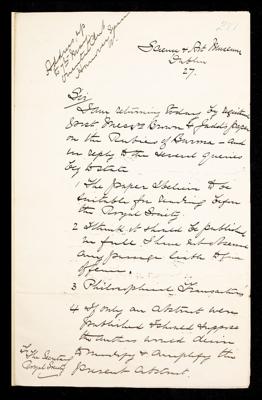 281
Address up
to 5th May
Oriental Club
Hanover Square
W.
Science & Art Museum
Dublin
27.
Sir
I am returning today by registered
post Messrs Brown & Judd's paper
on the Rubies of Burma – and
in reply to the several queries
beg to state
1 The paper I believe to be
suitable for reading before
the Royal Society
2 I think it should be published
in full I have not
any passage
offence.
3 Philosophical Transactions
4 If only an abstract were
published I should suppose
the authors would desire
to modify & amplify the
present abstract.
To
The Secretary
Royal Society